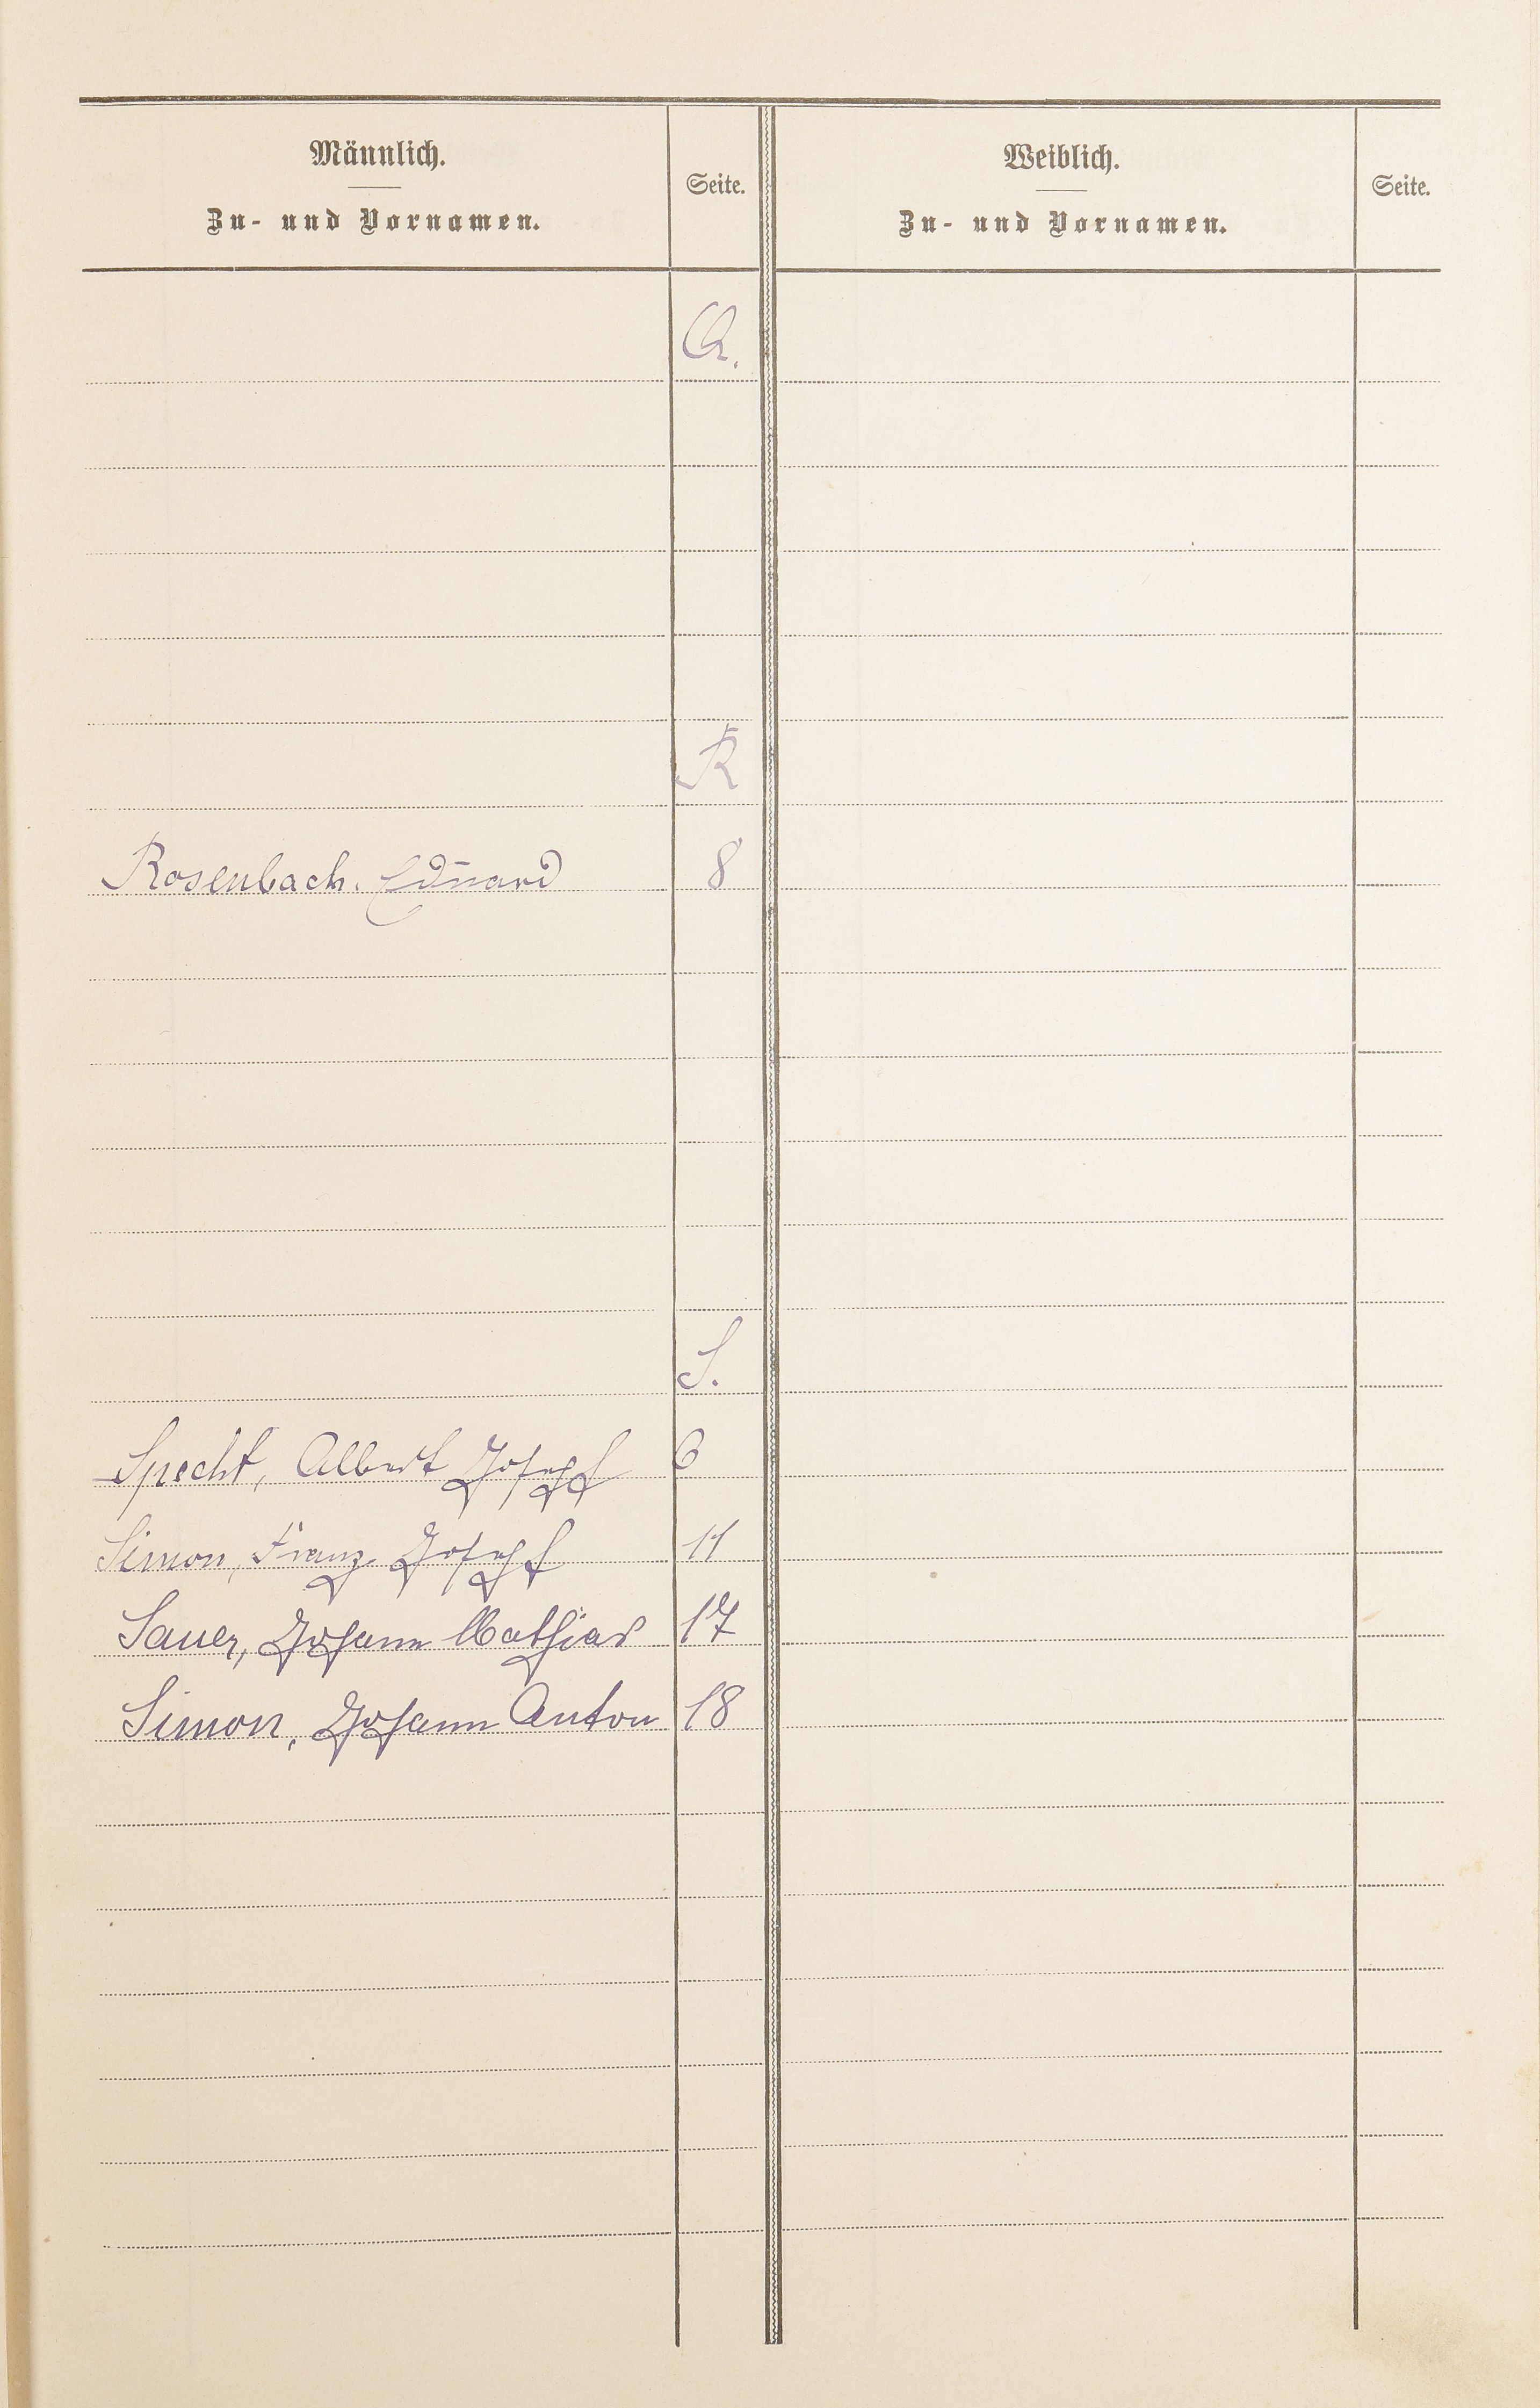 Männlich.
Zu- und Vornamen.
Seite.
Weiblich.
Zu- und Vornamen.
Seite.
Q.
R
Rosenbach. Eduard 8
S.
Specht, Albert Joseph 6
Simon, Franz Joseph 11
Sauer, Johann Mathias 17
Simon, Johann Anton 18